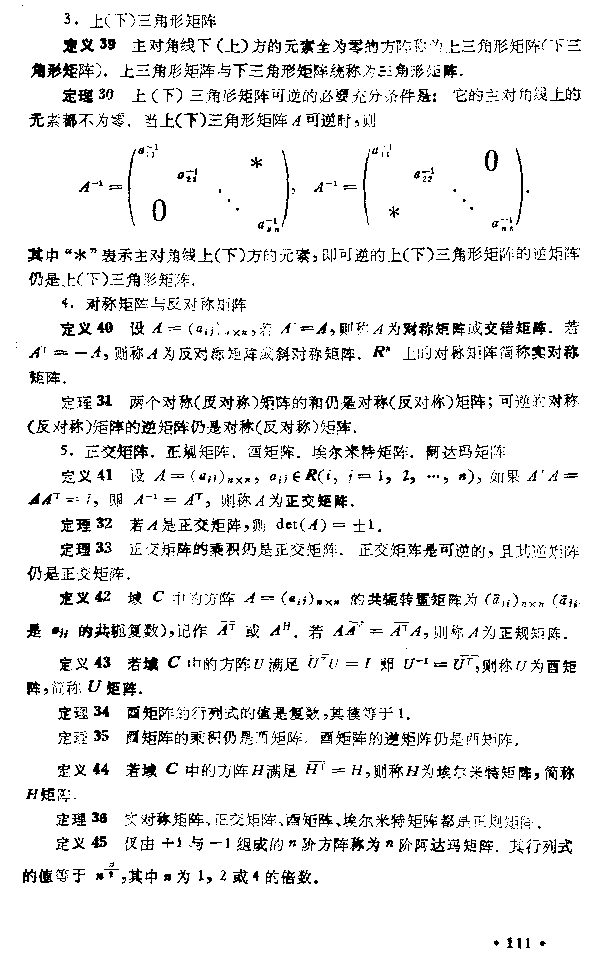 3. 上(下)三角形矩阵
定义 39 主对角线下(上)方的元素全为零的方阵称为上三角形矩阵(下三
角形矩阵). 上三角形矩阵与下三角形矩阵统称为三角形矩阵.
定理 30 上(下)三角形矩阵可逆的必要充分条件是: 它的主对角线上的
元素都不为零. 当上(下)三角形矩阵 A 可逆时, 则
A⁻¹ = ( a₁₁⁻¹ a₂₂⁻¹ * 0 ⋱ aₙₙ⁻¹ ), A⁻¹ = ( a₁₁⁻¹ a₂₂⁻¹ 0 * ⋱ aₙₙ⁻¹ ).
其中“*”表示主对角线上(下)方的元素, 即可逆的上(下)三角形矩阵的逆矩阵
仍是上(下)三角形矩阵.
4. 对称矩阵与反对称矩阵
定义 40 设 A = (aᵢⱼ)ₙₓₙ, 若 Aᵀ = A, 则称 A 为对称矩阵或交错矩阵. 若
Aᵀ = -A, 则称 A 为反对称矩阵或斜对称矩阵. Rⁿ 上的对称矩阵简称实对称
矩阵.
定理 31 两个对称(反对称)矩阵的和仍是对称(反对称)矩阵; 可逆的对称
(反对称)矩阵的逆矩阵仍是对称(反对称)矩阵.
5. 正交矩阵. 正规矩阵. 酉矩阵. 埃尔米特矩阵. 阿达玛矩阵
定义 41 设 A = (aᵢⱼ)ₙₓₙ, aᵢⱼ ∈ R(i, j = 1, 2, ···, n), 如果 AᵀA =
AAᵀ = I, 即 A⁻¹ = Aᵀ, 则称 A 为正交矩阵.
定理 32 若 A 是正交矩阵, 则 det(A) = ±1.
定理 33 正交矩阵的乘积仍是正交矩阵. 正交矩阵是可逆的, 且其逆矩阵
仍是正交矩阵.
定义 42 域 C 中的方阵 A = (aᵢⱼ)ₙₓₙ 的共轭转置矩阵为 (āⱼᵢ)ₙₓₙ (āⱼᵢ
是 aⱼᵢ 的共轭复数), 记作 A̅ᵀ 或 Aᴴ. 若 AA̅ᵀ = A̅ᵀA, 则称 A 为正规矩阵.
定义 43 若域 C 中的方阵 U 满足 U̅ᵀU = I 即 U⁻¹ = U̅ᵀ, 则称 U 为酉矩
阵, 简称 U 矩阵.
定理 34 酉矩阵的行列式的值是复数, 其模等于 1.
定理 35 酉矩阵的乘积仍是酉矩阵. 酉矩阵的逆矩阵仍是酉矩阵.
定义 44 若域 C 中的方阵 H 满足 H̅ᵀ = H, 则称 H 为埃尔米特矩阵, 简称
H 矩阵.
定理 36 实对称矩阵、正交矩阵、酉矩阵、埃尔米特矩阵都是正规矩阵.
定义 45 仅由 +1 与 -1 组成的 n 阶方阵称为 n 阶阿达玛矩阵. 其行列式
的值等于 n^(n/2), 其中 n 为 1, 2 或 4 的倍数.
• 111 •